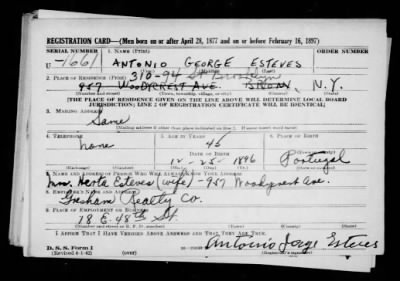 REGISTRATION CARD—(Men born on or after April 28, 1877 and on or before February 16, 1897)
SERIAL NUMBER 1. NAME (Print) ORDER NUMBER
U -1661 ANTONIO GEORGE ESTEVES
310-94 St Brooklyn
2. PLACE OF RESIDENCE (Print)
957 WOODYCREST AVE. BRONX, N.Y.
(Number and street) (Town, township, village, or city) (County) (State)
[THE PLACE OF RESIDENCE GIVEN ON THE LINE ABOVE WILL DETERMINE LOCAL BOARD
JURISDICTION; LINE 2 OF REGISTRATION CERTIFICATE WILL BE IDENTICAL]
3. MAILING ADDRESS
Same
[Mailing address if other than place indicated on line 2. If same insert word same]
4. TELEPHONE 5. AGE IN YEARS 6. PLACE OF BIRTH
none 45 Portugal
DATE OF BIRTH
12-25-1896
(Exchange) (Number) (Mo.) (Day) (Yr.) (State or country)
7. NAME AND ADDRESS OF PERSON WHO WILL ALWAYS KNOW YOUR ADDRESS
Mrs. Herta Esteves (wife) - 957 Woodycrest Ave.
8. EMPLOYER'S NAME AND ADDRESS
Gresham Realty Co.
9. PLACE OF EMPLOYMENT OR BUSINESS
18 E. 48th St.
(Number and street or R. F. D. number) (Town) (County) (State)
I AFFIRM THAT I HAVE VERIFIED ABOVE ANSWERS AND THAT THEY ARE TRUE.
D. S. S. Form 1
(Revised 4-1-42) (over)
Antonio Jorge Esteves